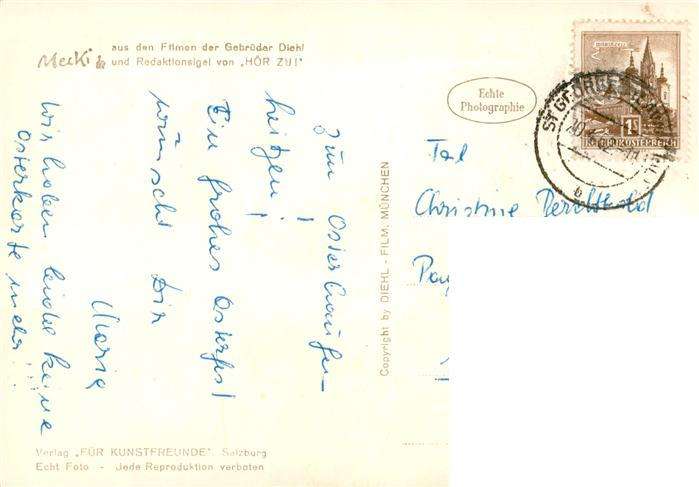 Mecki
aus den Filmen der Gebrüder Diehl
und Redaktionsigel von „HÖR ZU!"
Zum Osterhaufen-
heitzen!
Ein frohes Osterfest
wünscht Dir
Maria
Wir haben leider keine
Osterkarte mehr!
Verlag „FÜR KUNSTFREUNDE", Salzburg
Echt Foto - Jede Reproduktion verboten
Copyright by DIEHL - FILM, MÜNCHEN
Echte
Photographie
1S
REPUBLIK ÖSTERREICH
ST GEORGEN
Frl.
Christine